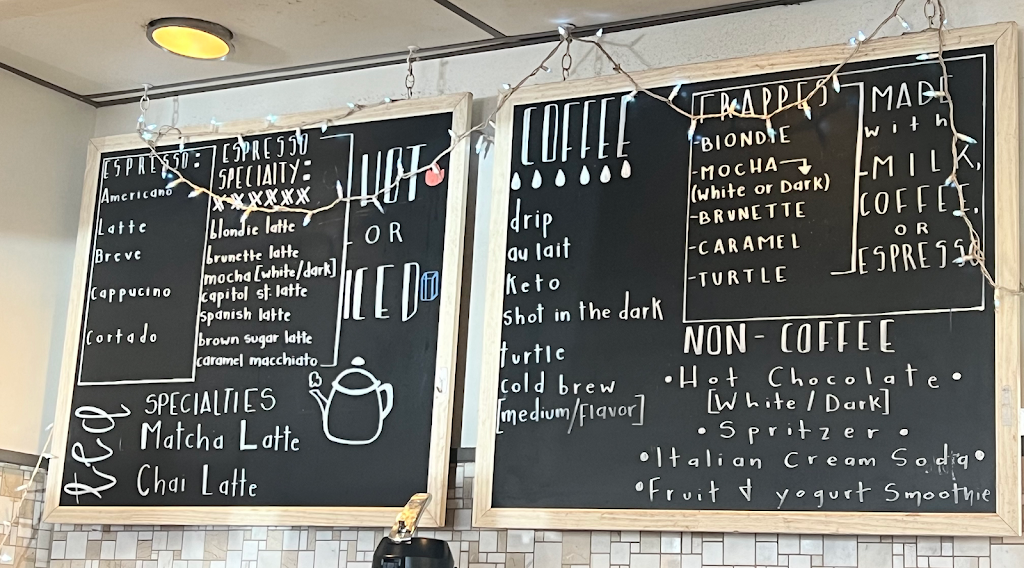 ESPRESSO:
Americano
Latte
Breve
Cappucino
Cortado
ESPRESSO
SPECIALTY:
blondie latte
brunette latte
mocha [white/dark]
capitol st. latte
spanish latte
brown sugar latte
caramel macchiato
HOT
- OR
ICED
tea
SPECIALTIES
Matcha Latte
Chai Latte
COFFEE
drip
au lait
Keto
shot in the dark
turtle
cold brew
[medium/flavor]
FRAPPES
-BLONDIE
-MOCHA
(White or Dark)
-BRUNETTE
-CARAMEL
-TURTLE
MADE
with
MILK,
COFFEE,
OR
ESPRESSO
NON-COFFEE
•Hot Chocolate•
[White/Dark]
•Spritzer•
•Italian Cream Soda•
•Fruit & yogurt Smoothie